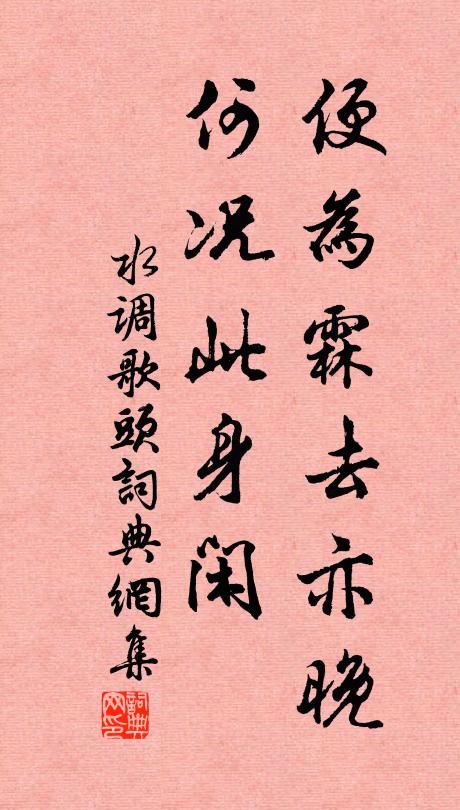 便為霖去亦晚
何况此身闲
水调歌頭詞典網集
詞典
网印